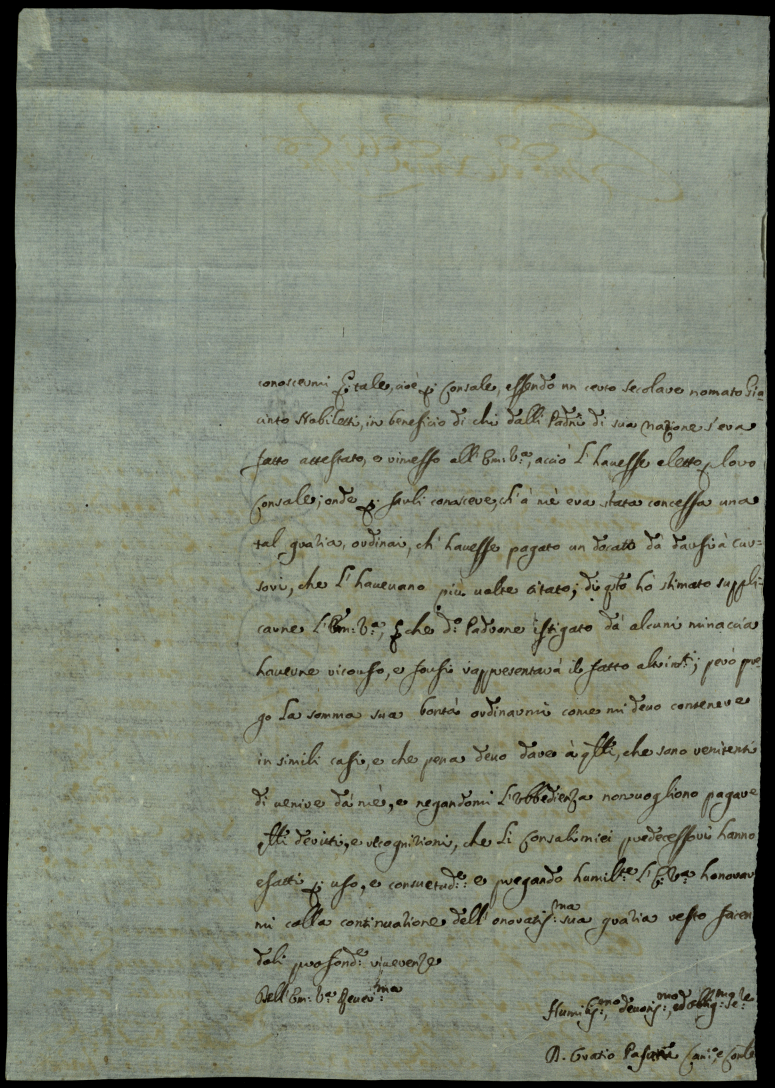 conoscermi p. tale, cioè p. Consale, essendo un certo secolare nomato Gia=
cinto Nobiletti, in beneficio di chi dalli Padri di sua nazione s'era
fatto attestato, e rimesso all'Em: Vra, acciò l'havesse eletto p. loro
Consale; onde p. farli conoscere, ch'à mè era stata concessa una
tal grazia, ordinai, ch'havesse pagato un docato dà darsi à Cur=
sori, che l'havevano più volte citato; di qsto hò stimato suppli=
carne l'Em: Vra, p. che do Padrone istigato dà alcuni minaccia
haverne ricorso, e forsi rappresentarà il fatto altrimti; però pre=
go la somma sua bontà ordinarmi come mi devo contenere
in simili casi, e che pena devo dare à qlli, che sono renitenti
di venire dà mè, e negandomi l'Ubbedienza non vogliono pagare
qlli deritti, e recognizioni, che li Consali miei predecessori hanno
esatti p. uso, e consuetude: e pregando humilte l'E: Vra honorar
mi colla continuatione dell'onoratisma: sua grazia resto facen
doli profonde riverenze
Dell'Em: Vra Reverma:
Humilismo:, devotismo:, ed obbligmo: Sre:
D. Oratio Canco, e Conle